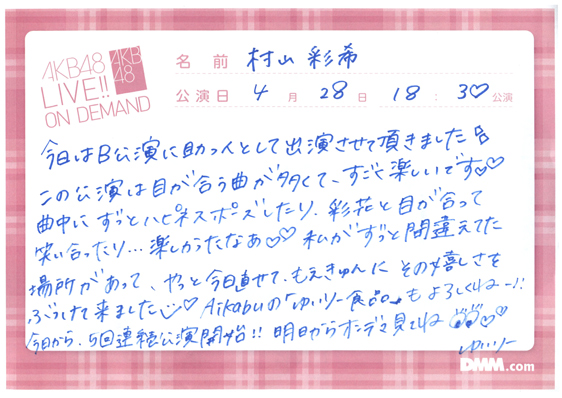 AKB48
LIVE!!
ON DEMAND
AKB
48
名前 村山 彩希
公演日 4月28日 18:30公演
今日はB公演に助っ人として出演させて頂きました
この公演は目が合う曲が多くて、すごく楽しいです♡♡
曲中にずっとハピネスポーズしたり、彩花と目が合って
笑い合ったり…楽しかったなぁ♡♡ 私がずっと間違えてた
場所があって、やっと今日直せて、もえきゅんにその嬉しさを
ぶつけて来ました♡ Aikabuの「ゆいりー食品」もよろしくねー!!
今日から、5回連続公演開始!! 明日からオンデマ見てね ♡♡
ゆいりー
DMM.com